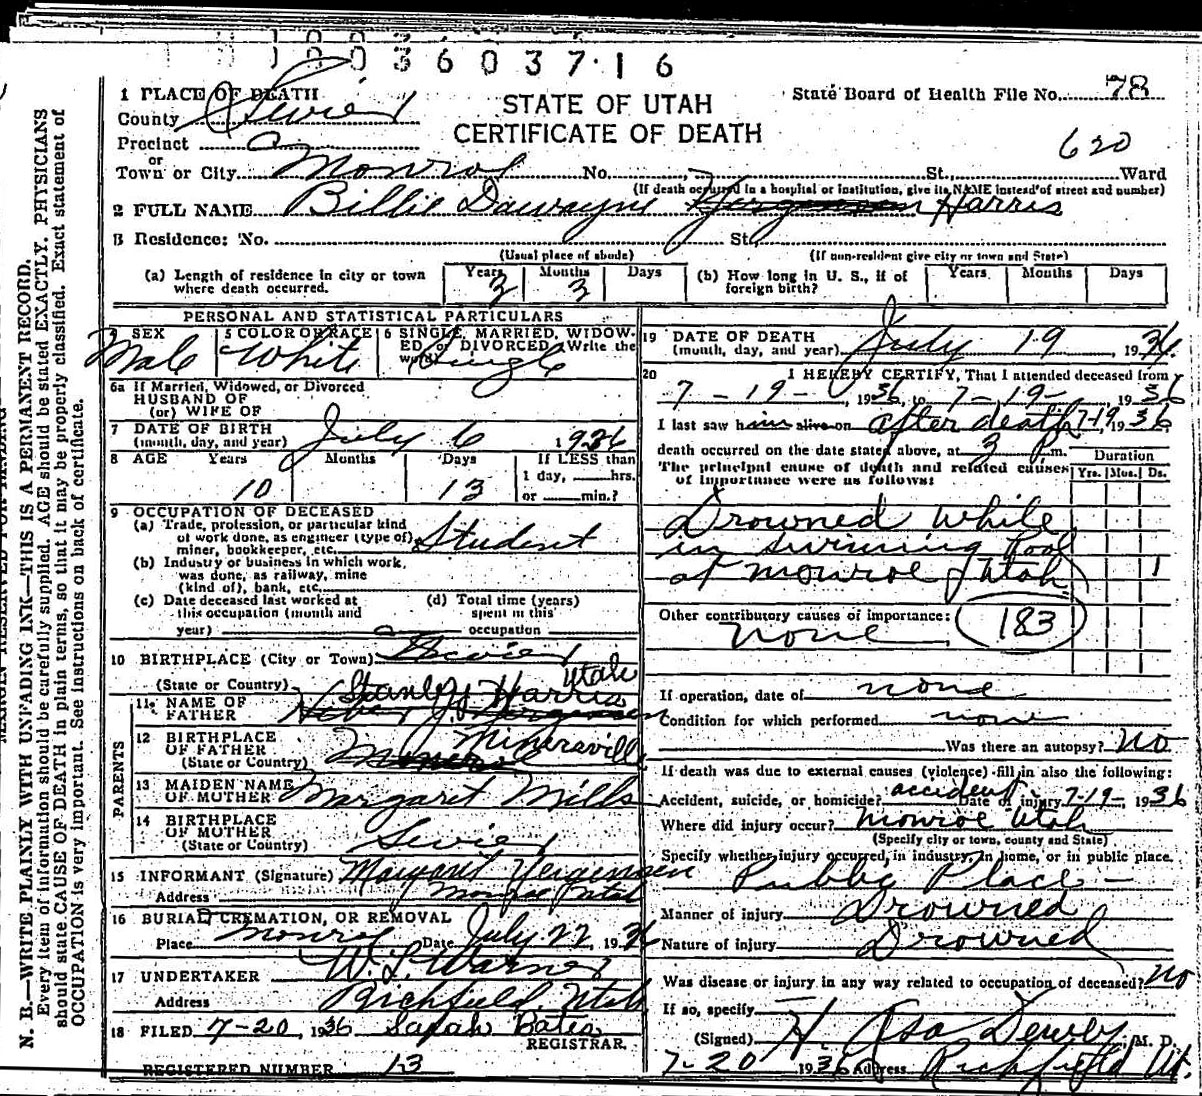 18036037·16
1 PLACE OF DEATH
County Sevier
STATE OF UTAH
CERTIFICATE OF DEATH
State Board of Health File No. 78
620
Precinct
or
Town or City Monroe No. St., Ward
(If death occurred in a hospital or institution, give its NAME instead of street and number)
2 FULL NAME Billie Dawayne Yergensen Harris
3 Residence: No. St.
(Usual place of abode) (If non-resident give city or town and State)
(a) Length of residence in city or town where death occurred. Years 3 Months 3 Days
(b) How long in U. S., if of foreign birth? Years Months Days
PERSONAL AND STATISTICAL PARTICULARS
4 SEX Male
5 COLOR OR RACE White
6 SINGLE, MARRIED, WIDOWED, or DIVORCED (Write the word) Single
6a If Married, Widowed, or Divorced
HUSBAND OF
(or) WIFE OF
7 DATE OF BIRTH
(month, day, and year) July 6 1926
8 AGE Years 10 Months Days 13 If LESS than
1 day, hrs.
or min.?
9 OCCUPATION OF DECEASED
(a) Trade, profession, or particular kind
of work done, as engineer (type of)
miner, bookkeeper, etc. Student
(b) Industry or business in which work,
was done, as railway, mine
(kind of), bank, etc.
(c) Date deceased last worked at
this occupation (month and
year)
(d) Total time (years)
spent in this
occupation
10 BIRTHPLACE (City or Town) Sevier
(State or Country) Utah
PARENTS
11 NAME OF
FATHER Stanley Harris
Heber J. Yergensen
12 BIRTHPLACE
OF FATHER
(State or Country) Minersville
Monroe
13 MAIDEN NAME
OF MOTHER Margaret Mills
14 BIRTHPLACE
OF MOTHER
(State or Country) Sevier
15 INFORMANT (Signature) Margaret Yergensen
Address Monroe Utah
16 BURIAL, CREMATION, OR REMOVAL
Place Monroe Date July 22, 1936
17 UNDERTAKER W. L. Warner
Address Richfield, Utah
18 FILED 7-20, 1936 Sarah Bates
REGISTRAR.
REGISTERED NUMBER 13
19 DATE OF DEATH
(month, day, and year) July 19, 1936
20 I HEREBY CERTIFY, That I attended deceased from
7-19-, 1936, to 7-19-, 1936
I last saw him alive on after death 7-19, 1936
death occurred on the date stated above, at 3 P.m.
The principal cause of death and related causes
of importance were as follows:
Duration
Yrs. Mos. Ds.
Drowned while
in swimming Pool
at Monroe Utah 1
Other contributory causes of importance:
none 183
If operation, date of none
Condition for which performed none
Was there an autopsy? No
If death was due to external causes (violence) fill in also the following:
Accident, suicide, or homicide? accident Date of injury 7-19-, 1936
Where did injury occur? Monroe Utah
(Specify city or town, county and State)
Specify whether injury occurred, in industry, in home, or in public place.
Public Place —
Manner of injury Drowned
Nature of injury Drowned
Was disease or injury in any way related to occupation of deceased? No
If so, specify
(Signed) H. Asa Dewey, M. D.
7-20 1936 Address Richfield Ut.
N. B.—WRITE PLAINLY WITH UNFADING INK—THIS IS A PERMANENT RECORD.
Every item of information should be carefully supplied. AGE should be stated EXACTLY. PHYSICIANS
should state CAUSE OF DEATH in plain terms, so that it may be properly classified. Exact statement of
OCCUPATION is very important. See instructions on back of certificate.